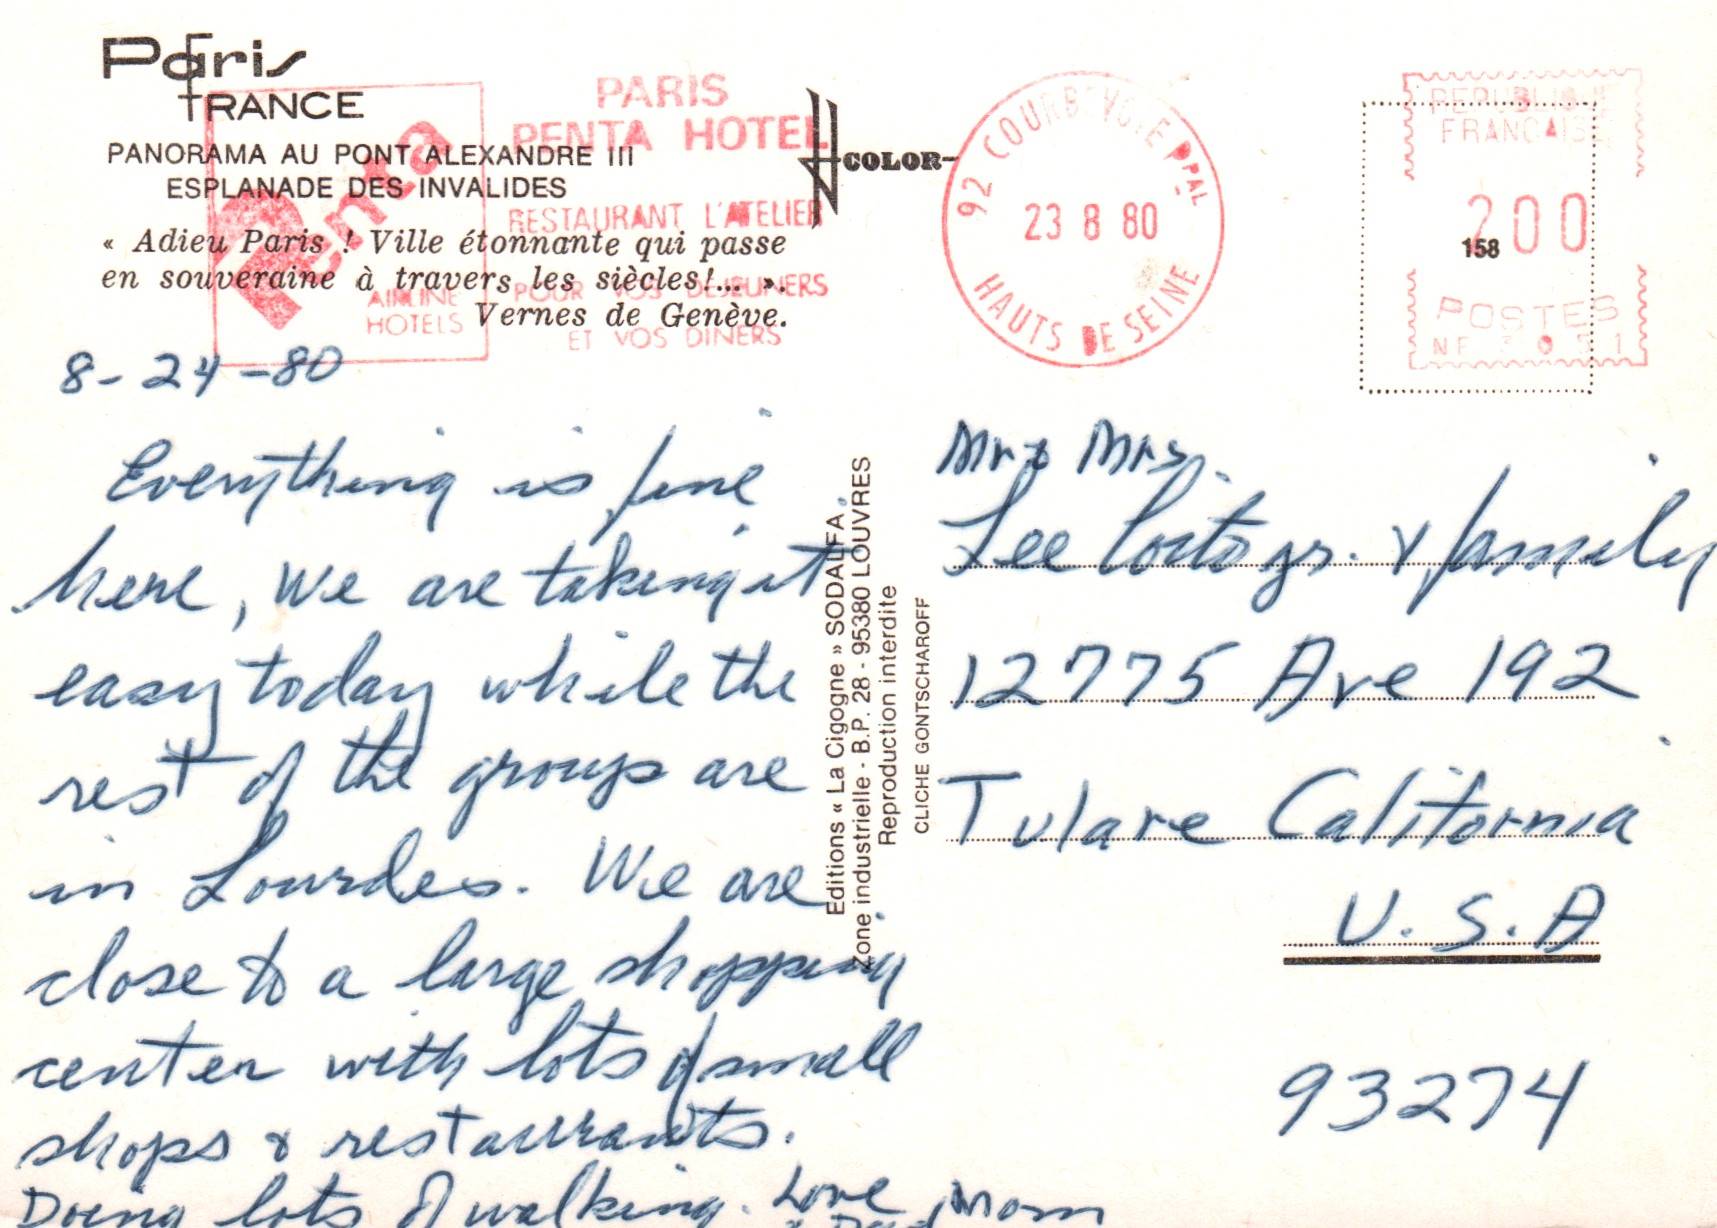 Paris
FRANCE
PANORAMA AU PONT ALEXANDRE III
ESPLANADE DES INVALIDES
« Adieu Paris ! Ville étonnante qui passe
en souveraine à travers les siècles!... ».
Vernes de Genève.
Penta
AIRLINE
HOTELS
PARIS
PENTA HOTEL
RESTAURANT L'ATELIER
POUR VOS DEJEUNERS
ET VOS DINERS
COLOR
92 COURBEVOIE PPAL
23 8 80
HAUTS DE SEINE
REPUBLIQUE
FRANCAISE
200
158
POSTES
8-24-80
Everything is fine
here, We are taking it
easy today while the
rest of the groups are
in Lourdes. We are
close to a large shopping
center with lots of small
shops & restaurants.
Doing lots of walking. Love Mom
& Dad
Editions « La Cigogne » SODALFA.
Zone industrielle - B.P. 28 - 95380 LOUVRES
Reproduction interdite
CLICHE GONTSCHAROFF
Mr & Mrs.
Lee Jr. & family
12775 Ave 192
Tulare California
U.S.A
93274